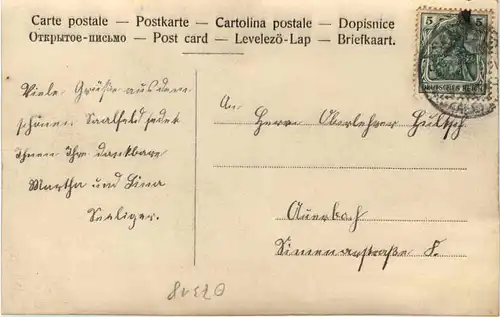 Carte postale — Postkarte — Cartolina postale — Dopisnice
Открытое-письмо — Post card — Levelezö-Lap — Briefkaart.
5 5
DEUTSCHES REICH
Viele Grüße aus dem
schönen Saalfeld sendet
Ihnen Ihre dankbare
Martha und Lina
Seeliger.
An
Herrn Oberlehrer Hultsch
Auerbach
Simmerstraße 8.